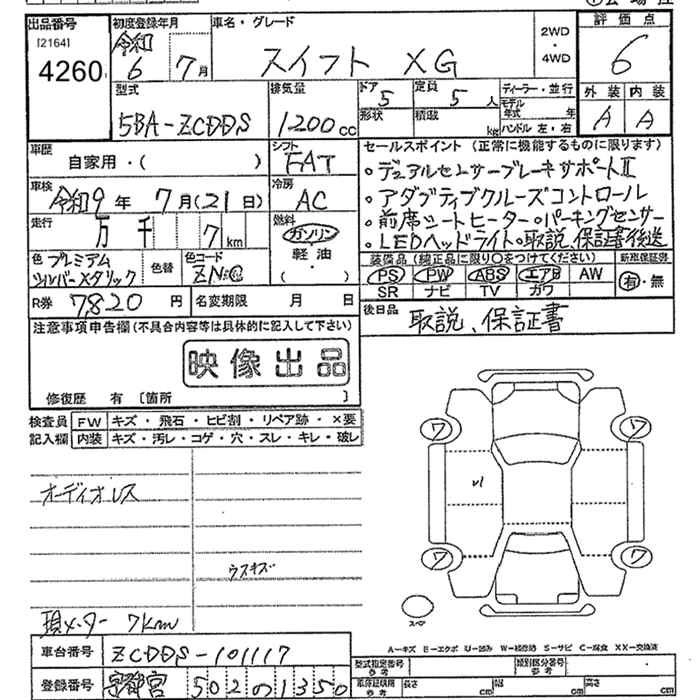 出品番号 初度登録年月 車名・グレード 評価点
[2164] 令和 2WD
4260 6 7月 スイフト XG ・4WD 6
型式 排気量 ドア 5 定員 5人 ディーラー・並行 外装 内装
5BA-ZCDDS 1200cc 形状 積載 kg モデル年式 年 A A
ハンドル 左・右
車歴 自家用・( ) シフト FAT セールスポイント (正常に機能するものに限ります)
・デュアルセンサーブレーキサポートⅡ
車検 令和9年 7月(21日) 冷房 AC ・アダプティブクルーズコントロール
走行 万 千 7km 燃料 ガソリン ・前席シートヒーター・パーキングセンサー
軽油 ・LEDヘッドライト・取説、保証書後送
色 プレミアムシルバーメタリック 色替 色コード ZNC ・( ) 装備品 (純正品に限り○をつけてください) 新車保証書
PS PW ABS エアB AW 有・無
R券 7,820円 名変期限 月 日 SR ナビ TV カワ
注意事項申告欄 (不具合内容等は具体的に記入して下さい) 後日品 取説、保証書
映像出品
修復歴 有 [箇所 ]
検査員 FW キズ・飛石・ヒビ割・リペア跡・×要
記入欄 内装 キズ・汚レ・コゲ・穴・スレ・キレ・破レ
ワ ワ
オーディオレス
ウスキズ
ワ ワ
現メーター 7km スペア
A-キズ E-エクボ U-凹み W-補修跡 S-サビ C-腐食 XX-交換済
車台番号 ZCDDS-101117 型式指定番号 参考 類別区分番号 参考
登録番号 宇都宮 502 の 1350 長さ cm 幅 cm 高さ cm